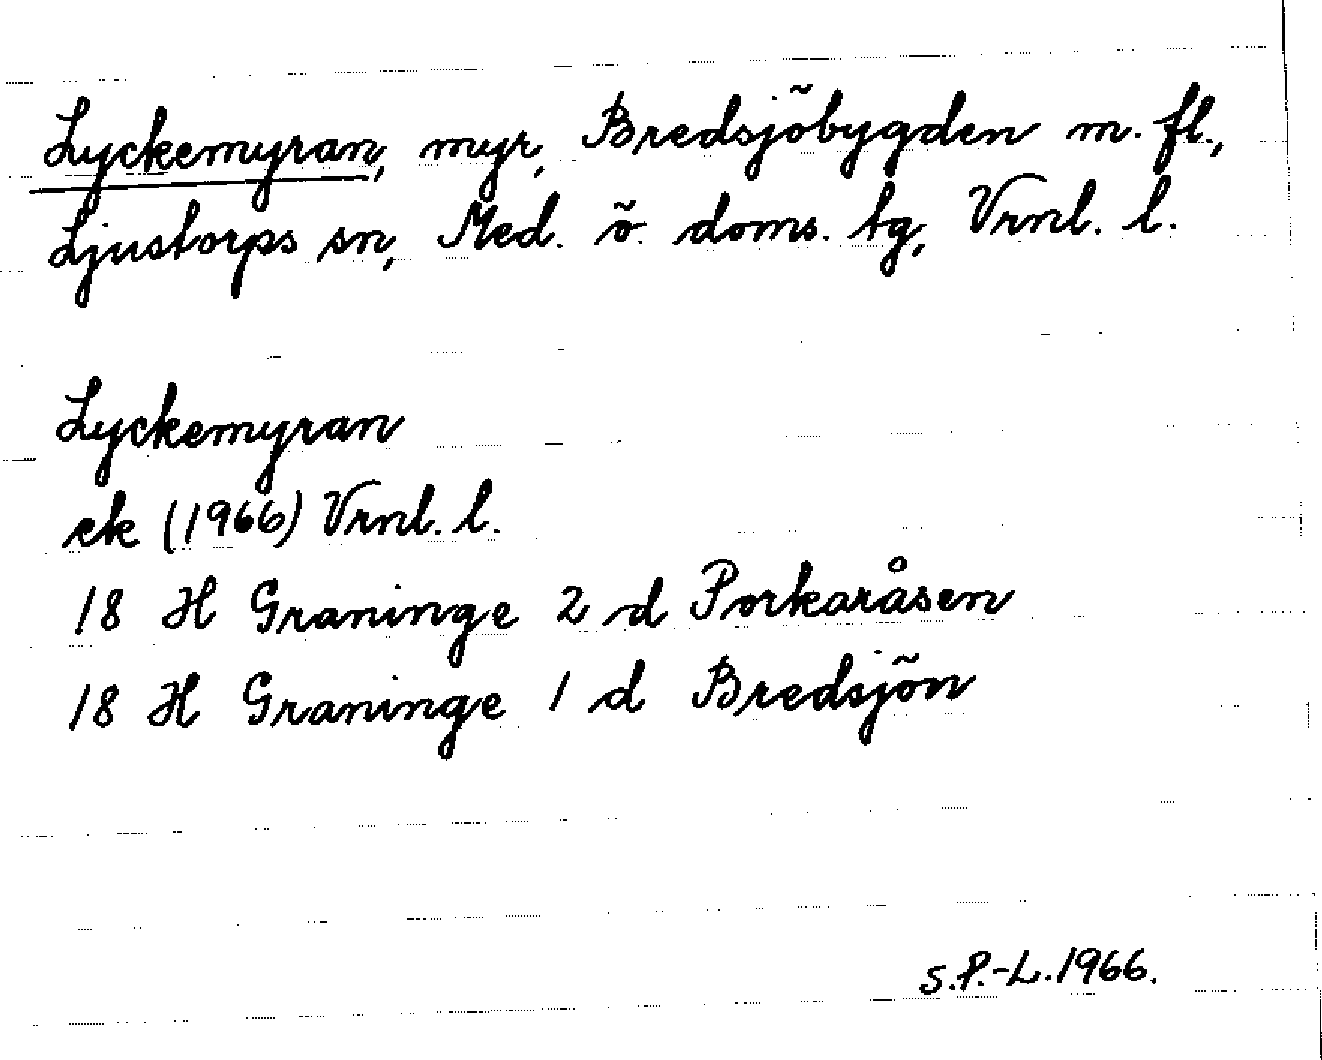 Lyckemyran, myr, Bredsjöbygden m. fl.,
Ljustorps sn, Med. ö. doms. tg, Vrnl. l.
Lyckemyran
ek (1966) Vrnl. l.
18 H Graninge 2 d Porkaråsen
18 H Graninge 1 d Bredsjön
S.P.-L. 1966.